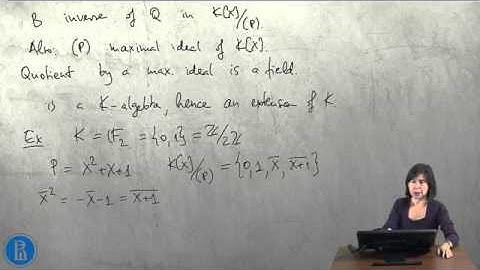 B inverse of Q in K[X]/(P).
Also, (P) maximal ideal of K[X].
Quotient by a max. ideal is a field.
is a K-algebra, hence an extension of K.
Ex K = 𝔽₂ = {0,1} = ℤ/2ℤ
P = X²+X+1 K[X]/(P) = {0, 1, X̅, X̅+̅1̅}
X̅² = -X̅-1 = X̅+̅1̅